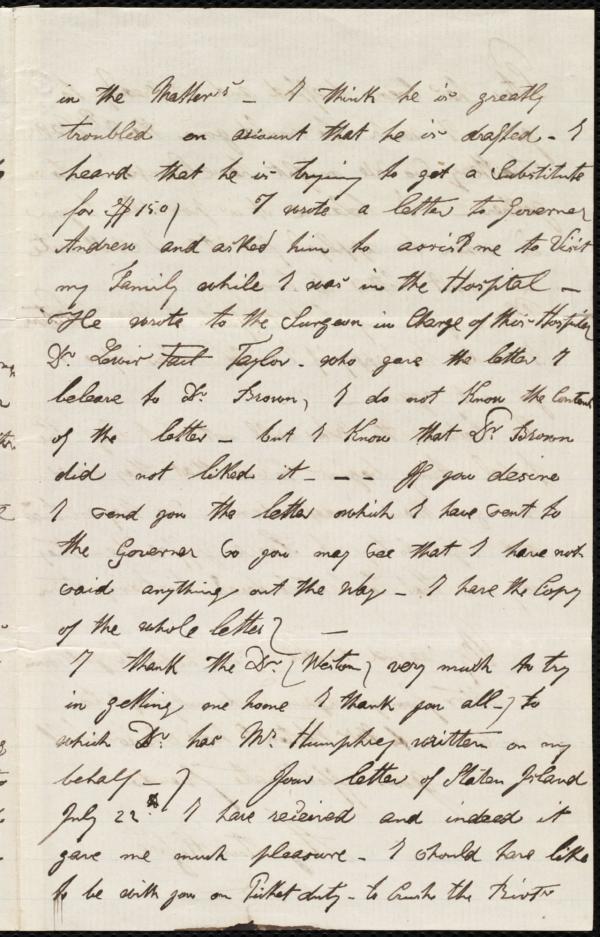 in the Matters – I think he is greatly
troubled on account that he is drafted – I
heard that he is trying to get a Substitute
for $150) I wrote a letter to Governer
Andrew and asked him to assist me to Visit
my Family while I was in the Hospital –
He wrote to the Surgeon in Charge of this Hospital
Dr. Lewis Tait Taylor. who gave the letter I
beleave to Dr. Brown, I do not Know the Contents
of the letter – but I Know that Dr. Brown
did not liked it – – – If you desire
I send you the letter which I have sent to
the Governer So you may see that I have not
said anything out the Way – I have the Copy
of the whole letter) —
I thank the Dr. (Weston) very much to try
in getting me home I thank you all –) to
which Dr. has Mr. Humphrey written on my
behalf –) Your letter of Staten Island
July 22d I have received and indeed it
gave me much pleasure – I should have like
to be with you on Picket duty – to Crush the